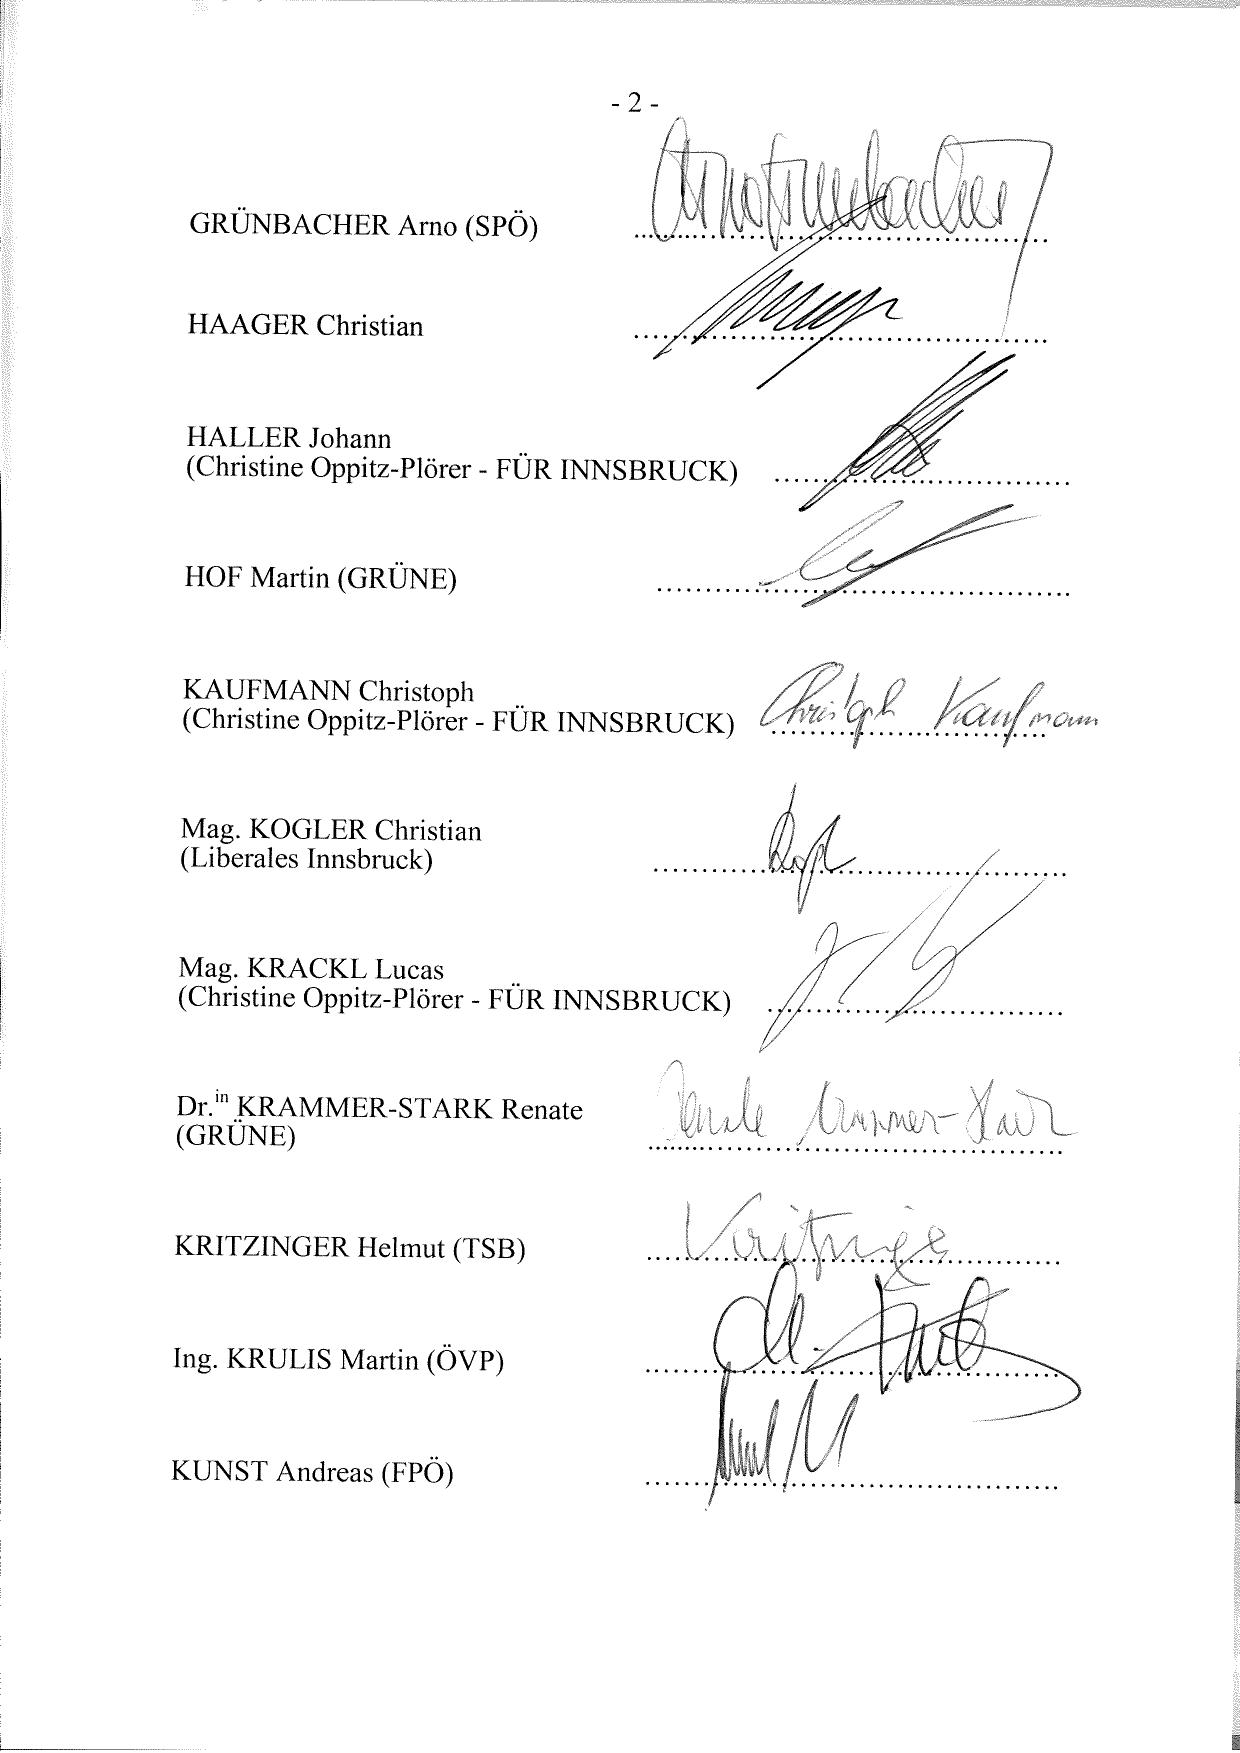 - 2 -
GRÜNBACHER Arno (SPÖ) ........................................ Arno Grünbacher
HAAGER Christian ........................................
HALLER Johann
(Christine Oppitz-Plörer - FÜR INNSBRUCK) ........................................
HOF Martin (GRÜNE) ........................................
KAUFMANN Christoph
(Christine Oppitz-Plörer - FÜR INNSBRUCK) Christoph Kaufmann
Mag. KOGLER Christian
(Liberales Innsbruck) ........................................
Mag. KRACKL Lucas
(Christine Oppitz-Plörer - FÜR INNSBRUCK) ........................................
Dr.in KRAMMER-STARK Renate Renate Krammer-Stark
(GRÜNE) ........................................
KRITZINGER Helmut (TSB) Kritzinger
Ing. KRULIS Martin (ÖVP) ........................................
KUNST Andreas (FPÖ) ........................................